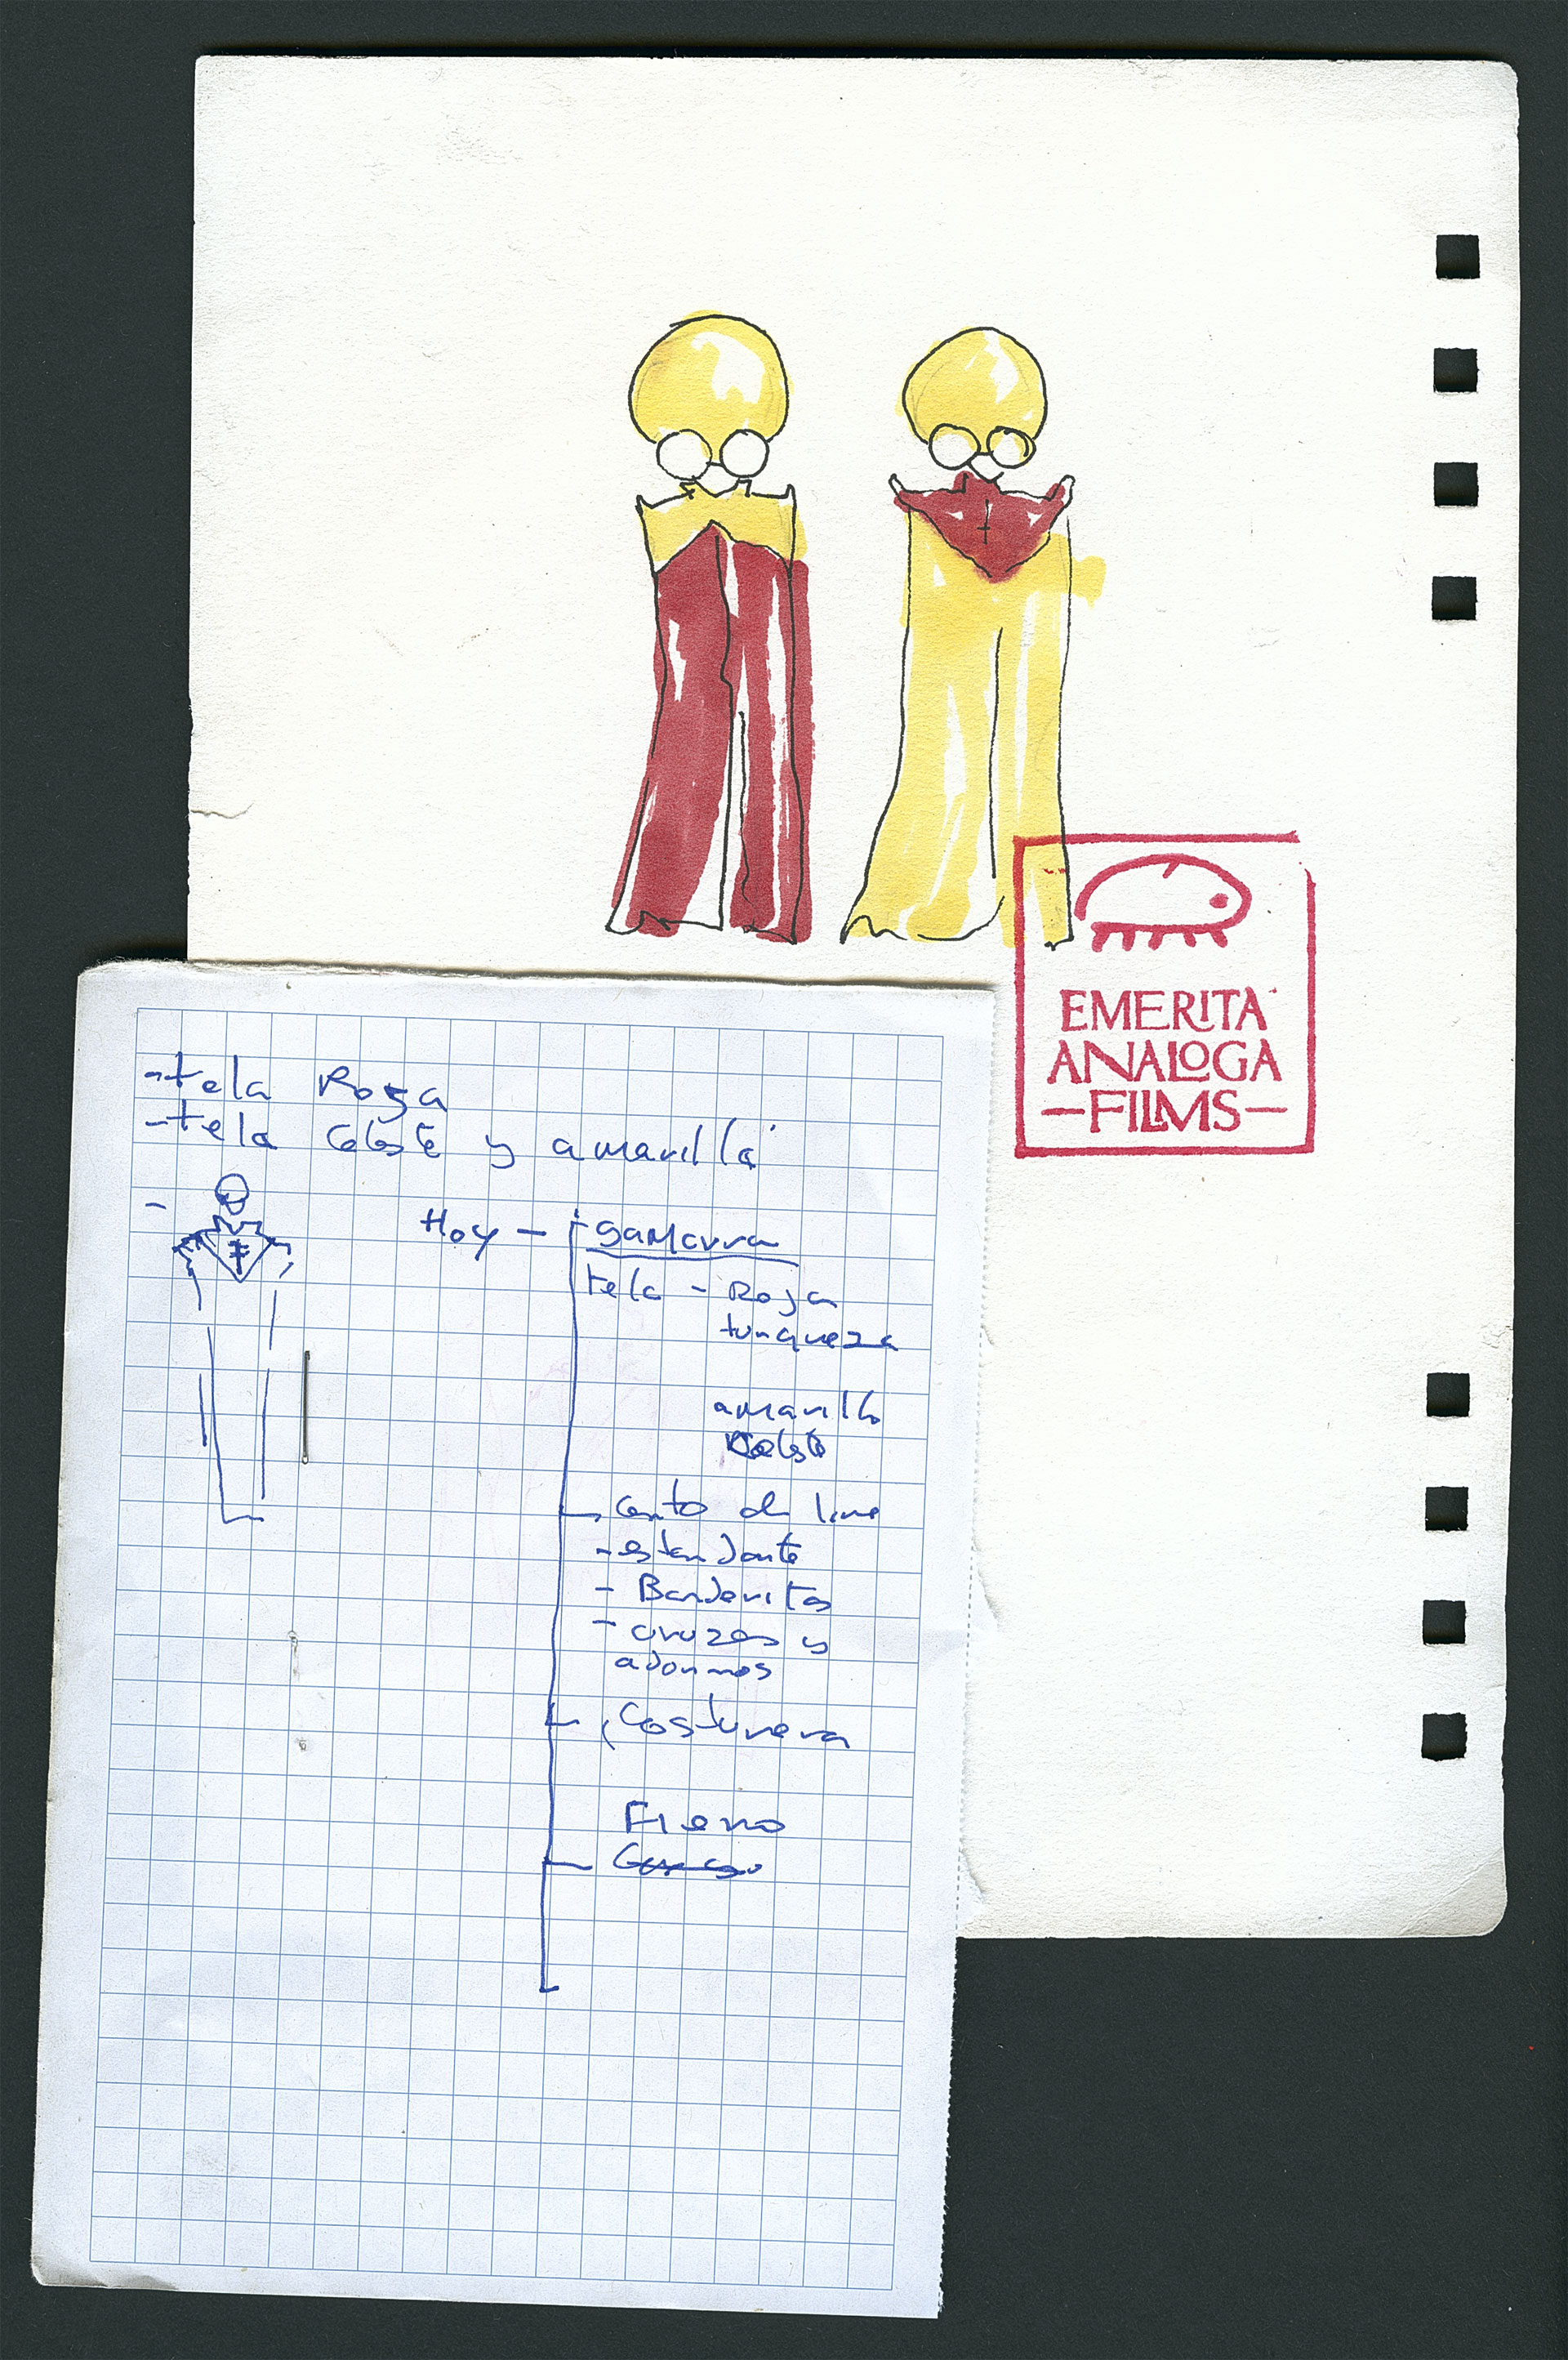 EMERITA
ANALOGA
—FILMS—
-tela Roja
-tela celeste y amarilla
-
Hoy — gamarra
tela - Roja
turqueza
amarillo
celeste
- estandarte
- Banderitas
- cruzes y
adornos
Costurera
Fierro